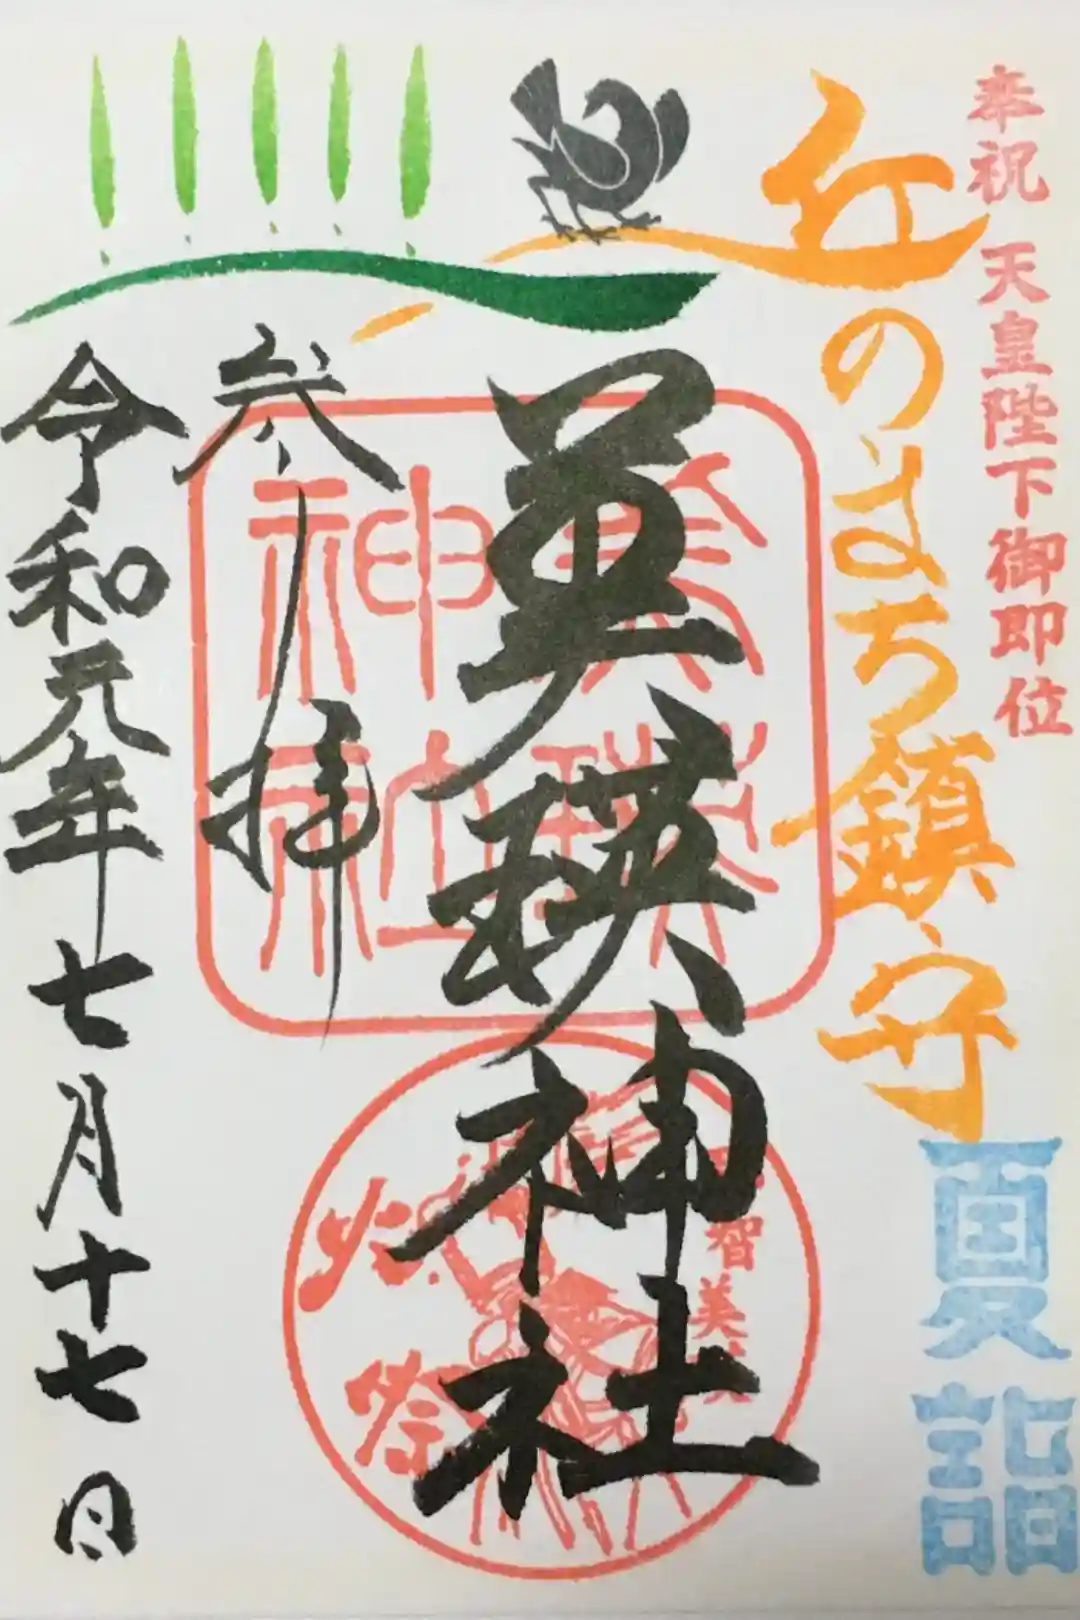 奉祝 天皇陛下御即位
丘のまち鎮守
夏詣
美瑛神社
参拝
令和元年七月十七日
美瑛
神社
智美
火祭